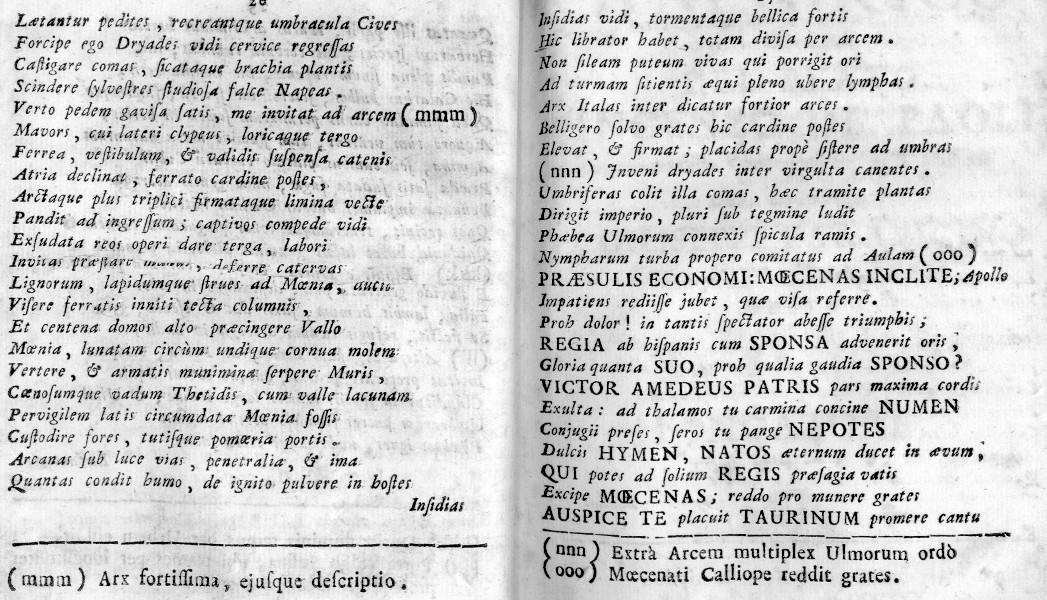 Lætantur pedites, recreantque umbracula Cives
Forcipe ego Dryades vidi cervice regreſſas
Caſtigare comas, ſicataque brachia plantis
Scindere ſylveſtres ſtudioſa falce Napeas.
Verto pedem gaviſa ſatis, me invitat ad arcem (mmm)
Mavors, cui lateri clypeus, loricaque tergo
Ferrea, veſtibulum, & validis ſuſpenſa catenis
Atria declinat, ferrato cardine poſtes,
Arctaque plus triplici firmataque limina vecte
Pandit ad ingreſſum; captivos compede vidi
Exſudata reos operi dare terga, labori
Invitas præſtare deferre catervas
Lignorum, lapidumque ſtrues ad Mœnia,
Viſere ferratis inniti tecta columnis,
Et centena domos alto præcingere Vallo
Mœnia, lunatam circùm undique cornua molem
Vertere, & armatis munimina ſerpere Muris,
Cœnoſumque vadum Thetidis, cum valle lacunam
Pervigilem latis circumdata Mœnia foſſis
Cuſtodire fores, tutiſque pomœria portis.
Arcanas ſub luce vias, penetralia, & ima
Quantas condit humo, de ignito pulvere in hoſtes
Inſidias
(mmm) Arx fortiſſima, ejuſque deſcriptio.
Inſidias vidi, tormentaque bellica fortis
Hic librator habet, totam diviſa per arcem.
Non ſileam puteum vivas qui porrigit ori
Ad turmam ſitientis æqui pleno ubere lymphas.
Arx Italas inter dicatur fortior arces.
Belligero ſolvo grates hic cardine poſtes
Elevat, & firmat; placidas propè ſiſtere ad umbras
(nnn) Inveni dryades inter virgulta canentes.
Umbriferas colit illa comas, hæc tramite plantas
Dirigit imperio, pluri ſub tegmine ludit
Phæbea Ulmorum connexis ſpicula ramis.
Nympharum turba propero comitatus ad Aulam (ooo)
PRÆSULIS ECONOMI: MŒCENAS INCLITE; Apollo
Impatiens rediiſſe jubet, quæ viſa referre.
Proh dolor! in tantis ſpectator abeſſe triumphis;
REGIA ab hiſpanis cum SPONSA advenerit oris,
Gloria quanta SUO, proh qualia gaudia SPONSO?
VICTOR AMEDEUS PATRIS pars maxima cordis
Exulta: ad thalamos tu carmina concine NUMEN
Conjugii preſes, ſeros tu pange NEPOTES
Dulcis HYMEN, NATOS æternum ducet in ævum,
QUI potes ad ſolium REGIS præſagia vatis
Excipe MŒCENAS; reddo pro munere grates
AUSPICE TE placuit TAURINUM promere cantu
(nnn) Extrà Arcem multiplex Ulmorum ordò
(ooo) Mœcenati Calliope reddit grates.